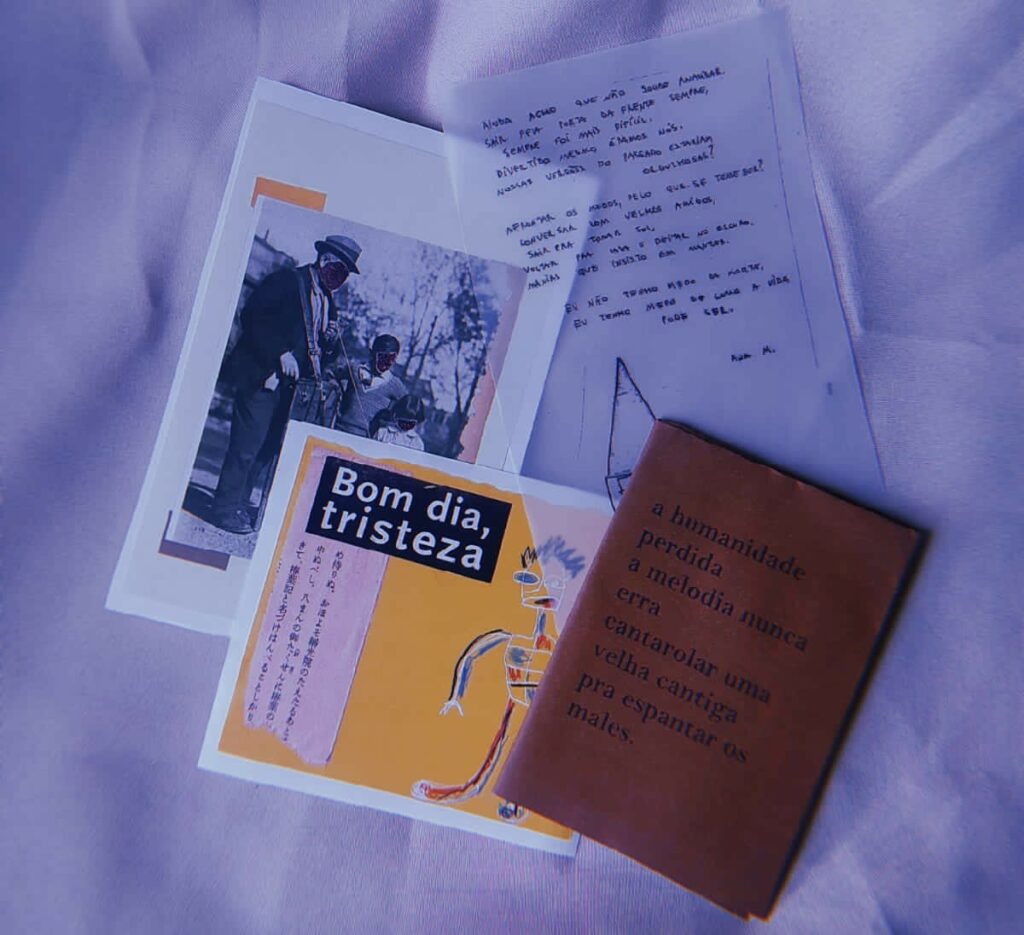 AINDA ACHO QUE NÃO SOUBE
SAIR PELA PORTA DA FRENTE SEMPRE,
SEMPRE FOI MAIS DIFÍCIL.
DIVERTIDO MESMO ÉRAMOS NÓS.
NOSSAS VERSÕES DO PASSADO ESTARIAM
ORGULHOSAS?
AFRONTAR OS MEDOS, PELO QUE SE TEME
CONVERSAR COM VELHOS AMIGOS,
SAIR PRA TOMAR SOL,
VOLTAR PRA DEITAR NO ESCURO.
MANIAS QUE INSISTO EM MANTER.
EU NÃO TENHO MEDO DA MORTE,
EU TENHO MEDO DO QUE A VIDA
PODE SER.
ANA M.
Bom dia,
tristeza
め侍りぬ。おほよそ
中ぬべし。八まんの御た
きて、
a humanidade
perdida
a melodia nunca
erra
cantarolar uma
velha cantiga
pra espantar os
males.